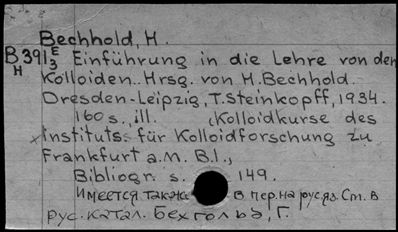 Bechhold, H.
B391 E/3 Einführung in die Lehre von den
H Kolloiden. Hrsg. von H. Bechhold.
Dresden-Leipzig, T. Steinkopff, 1934.
160 s., ill. (Kolloidkurse des
Instituts für Kolloidforschung zu
Frankfurt a.M. B.I.,
Bibliogr. s. 149.
Имеется также в пер. на рус.яз. См. в
рус. катал. Бехгольд, Г.